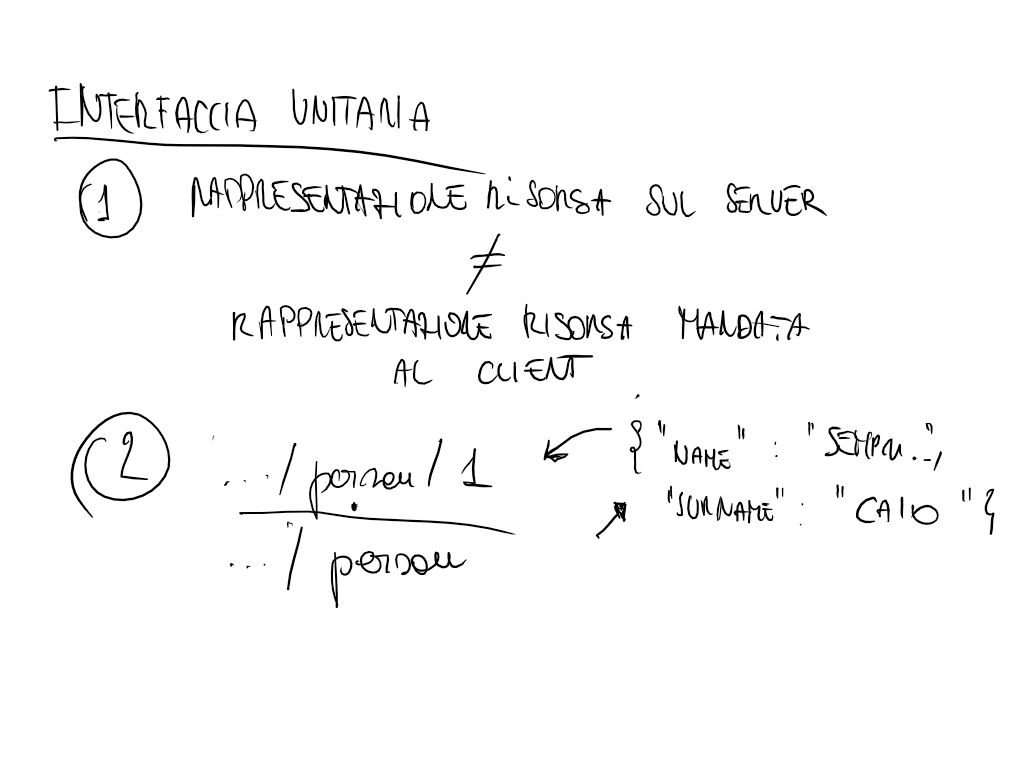 INTERFACCIA UNITARIA
1 RAPPRESENTAZIONE RISORSA SUL SERVER
≠
RAPPRESENTAZIONE RISORSA MANDATA
AL CLIENT
2 .../ person / 1
{ "NAME" : "SEMPR..",
"SURNAME" : "CAIO" }
.../ person